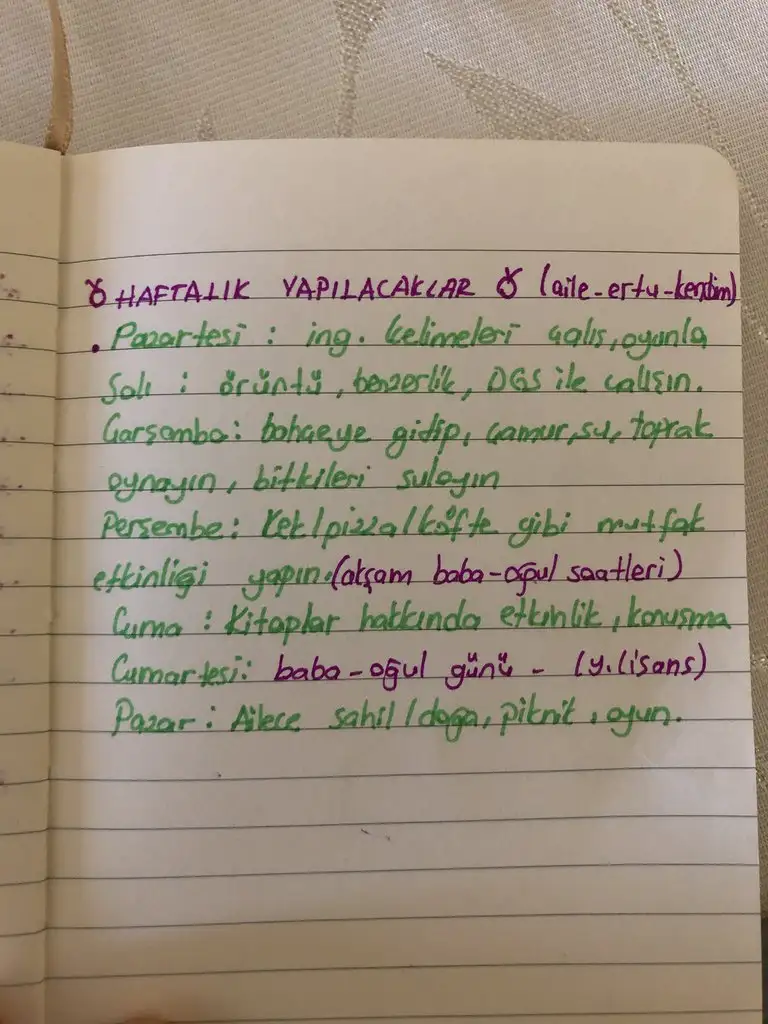 HAFTALIK YAPILACAKLAR (aile-ertu-kendim)
• Pazartesi : ing. kelimeleri çalış, oyunla
Salı : örüntü, benzerlik, DGS ile çalışın.
Çarşamba: bahçeye gidip, çamur, su, toprak
oynayın, bitkileri sulayın
Perşembe: Kek/pizza/köfte gibi mutfak
etkinliği yapın. (akşam baba-oğul saatleri)
Cuma : Kitaplar hakkında etkinlik, konuşma
Cumartesi: baba-oğul günü - (y.lisans)
Pazar : Ailece sahil/doğa, piknik, oyun.